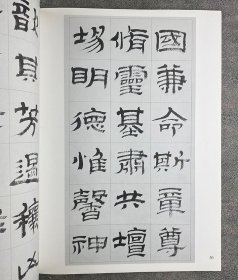 國兼命斯章尊
脩靈基肅共壇
場明德惟馨神
歆其芳遏禳凶